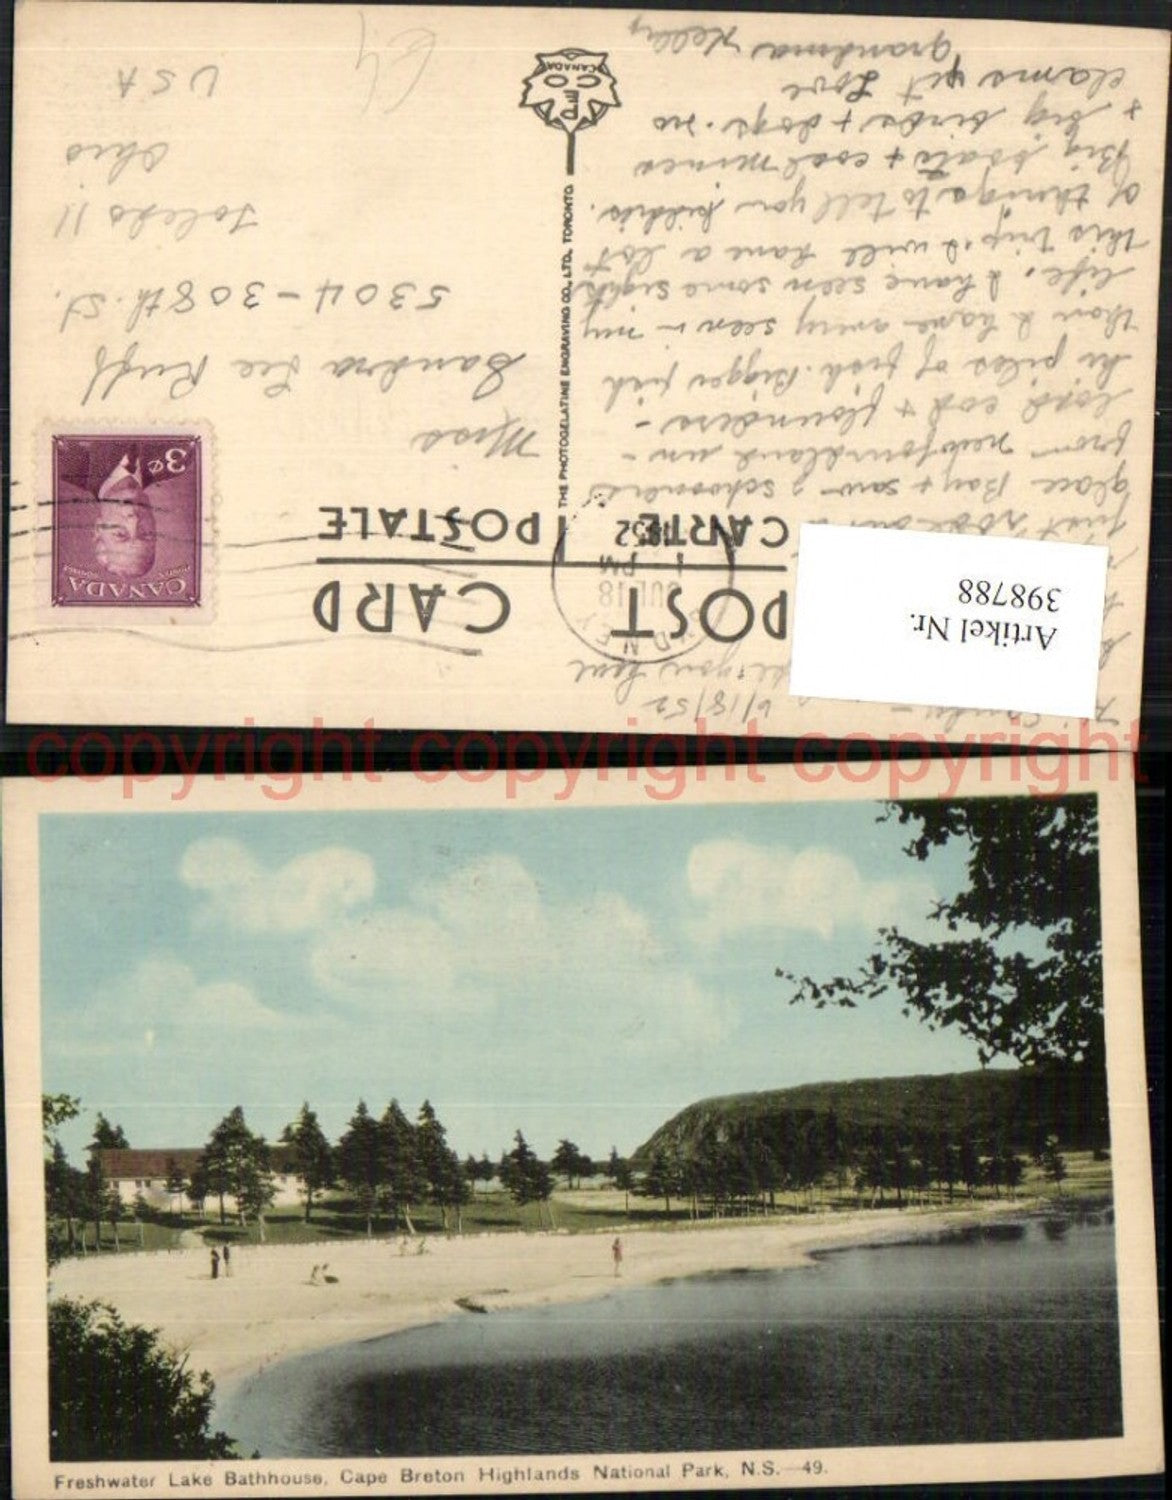 POST CARD
CARTE POSTALE
THE PHOTOGELATINE ENGRAVING CO., LTD., TORONTO.
PECO
CANADA
CANADA
3¢
SYDNEY
JUL 18
PM
1952
Artikel Nr.
398788
/18/52
Glace Bay + saw 3 schooners
from newfoundland un-
load cod + flounders -
in piles of fish. Bigger fish
than I have every seen in my
life. I have seen some sights
this trip & will have a lot
of things to tell you kiddies.
Big boats + coal mines
+ big birds + dogs. no
clams yet Love
Grandma Kelly
Miss
Sandra Lee Ruff
5304-308th St.
Toledo 11
Ohio
USA
copyright copyright copyright copyright
Freshwater Lake Bathhouse, Cape Breton Highlands National Park, N.S.—49.